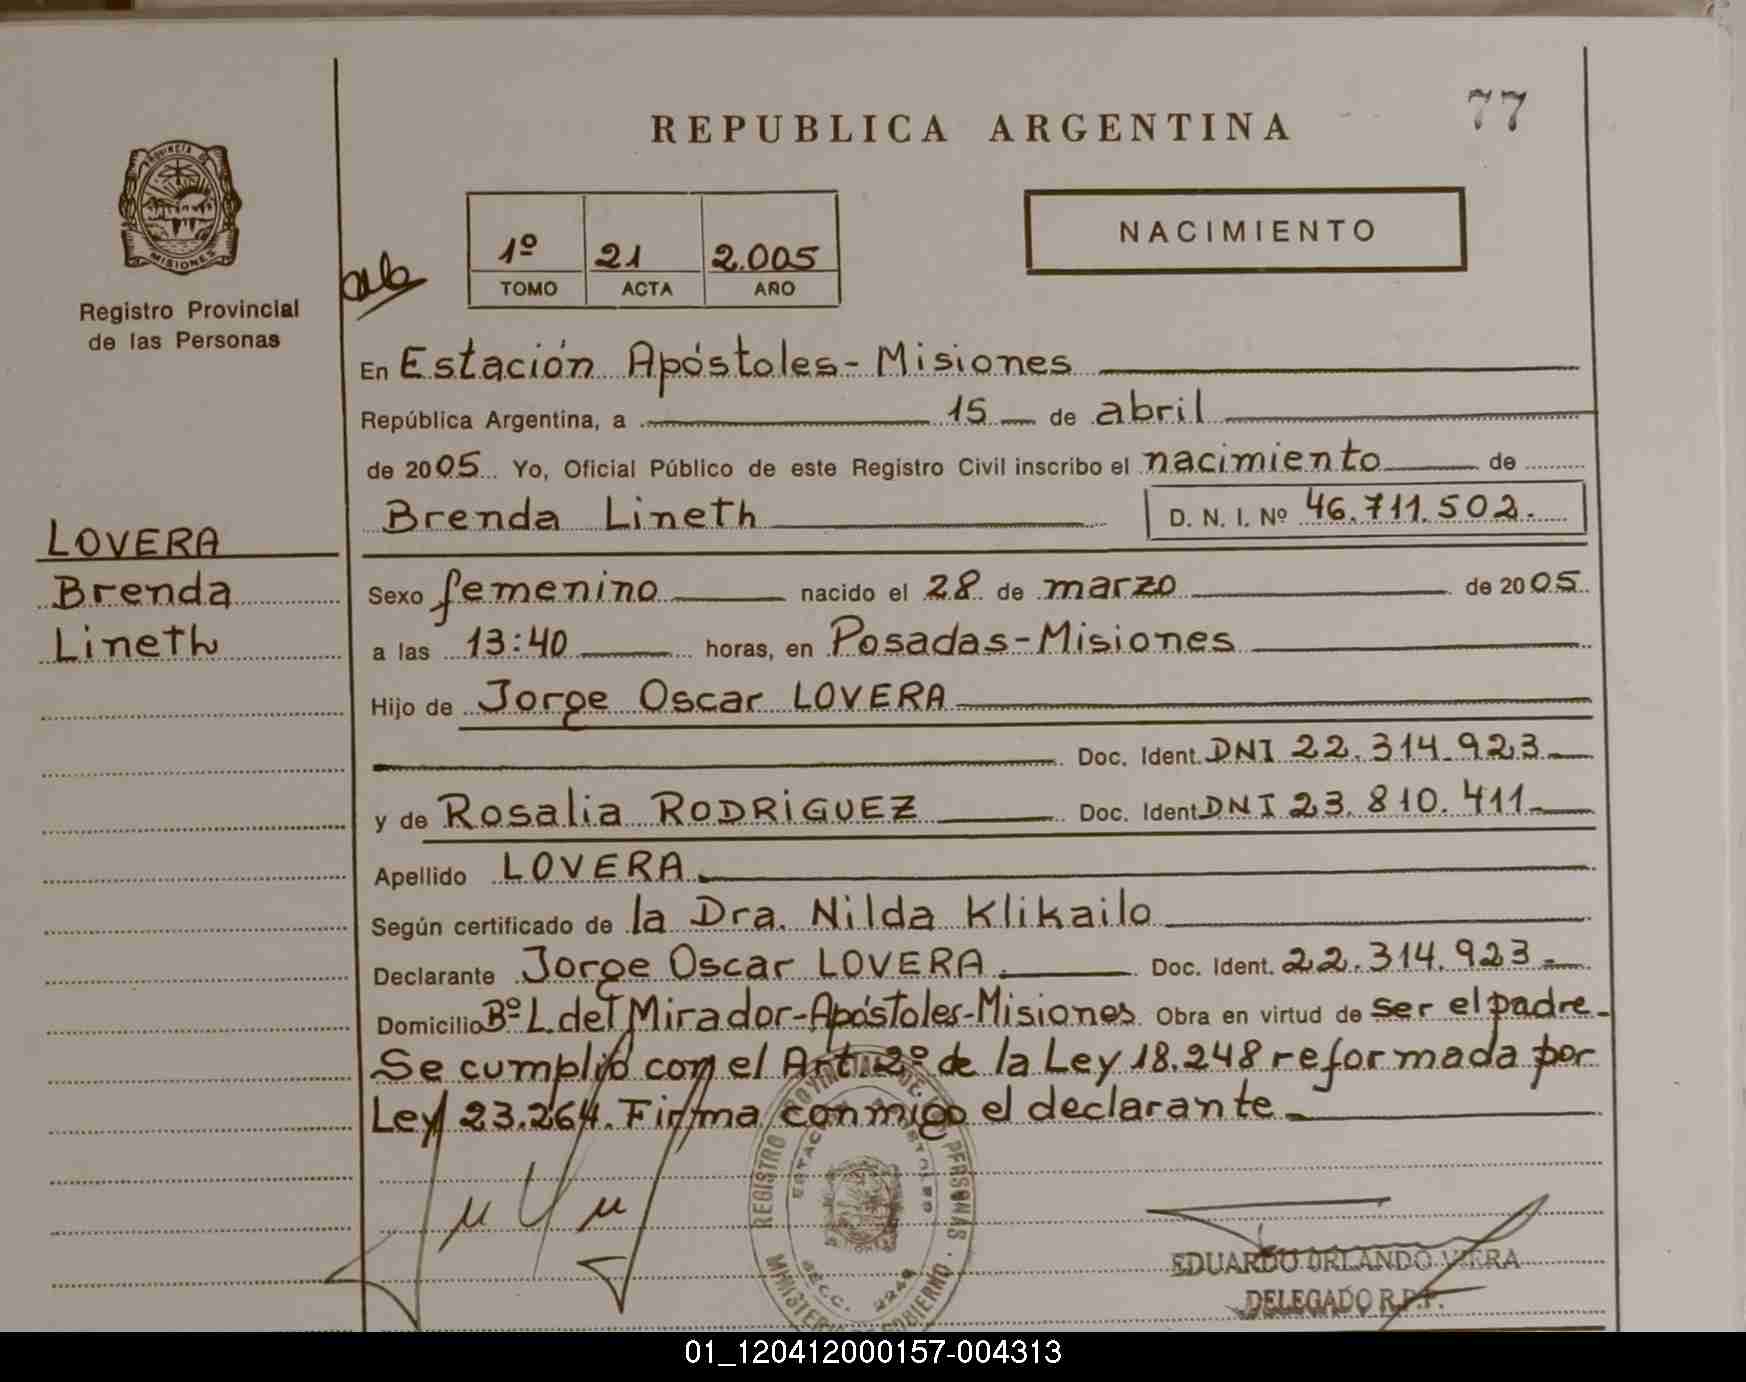 77
REPUBLICA ARGENTINA
PROVINCIA DE
MISIONES
Registro Provincial
de las Personas
1º 21 2.005
TOMO ACTA AÑO
NACIMIENTO
En Estación Apóstoles - Misiones
República Argentina, a 15 de abril
de 2005 Yo, Oficial Público de este Registro Civil inscribo el nacimiento de
Brenda Lineth D. N. I. Nº 46.711.502.
LOVERA
Brenda
Lineth
Sexo femenino nacido el 28 de marzo de 2005
a las 13:40 horas, en Posadas - Misiones
Hijo de Jorge Oscar LOVERA
Doc. Ident. DNI 22.314.923
y de Rosalia RODRIGUEZ Doc. Ident. DNI 23.810.411
Apellido LOVERA
Según certificado de la Dra. Nilda Klikailo
Declarante Jorge Oscar LOVERA. Doc. Ident. 22.314.923
Domicilio Bº L. del Mirador - Apóstoles - Misiones Obra en virtud de ser el padre.
Se cumplió con el Art. 2º de la Ley 18.248 reformada por
Ley 23.264. Firma conmigo el declarante
REGISTRO PROVINCIAL DE PERSONAS
SECC. 2248
EDUARDO ORLANDO VIERA
DELEGADO R.P.P.
01_120412000157-004313